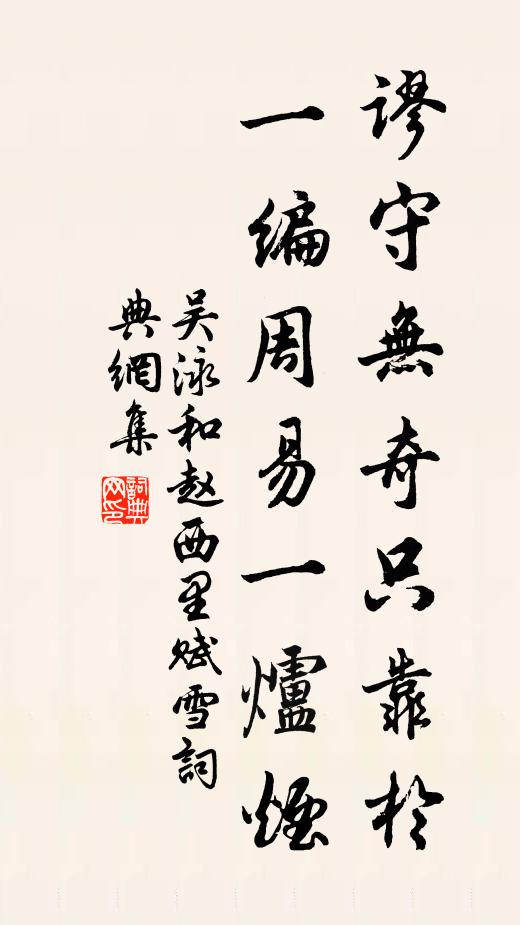 谬守無奇只靠於
一编周易一爐煙
吴泳和赵西里赋雪詞
典網集
詞典网印